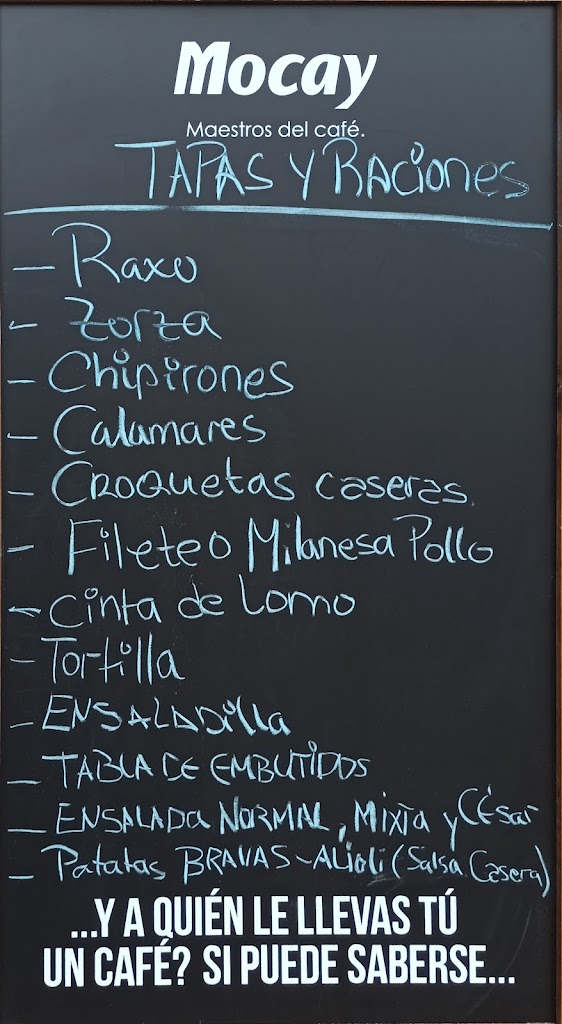 Mocay
Maestros del café.
TAPAS Y RACiONES
- Raxo
- Zorza
- Chipirones
- Calamares
- CROQUETAS caseras.
- Fileteo Milanesa Pollo
- Cinta de Lomo
- Tortilla
- ENSALADilla
- TABLA DE EMBUTIDOS
- ENSALADA NORMAL, Mixta y César
- Patatas BRAVAS - ALioli (Salsa Casera)
...Y A QUIÉN LE LLEVAS TÚ
UN CAFÉ? SI PUEDE SABERSE...